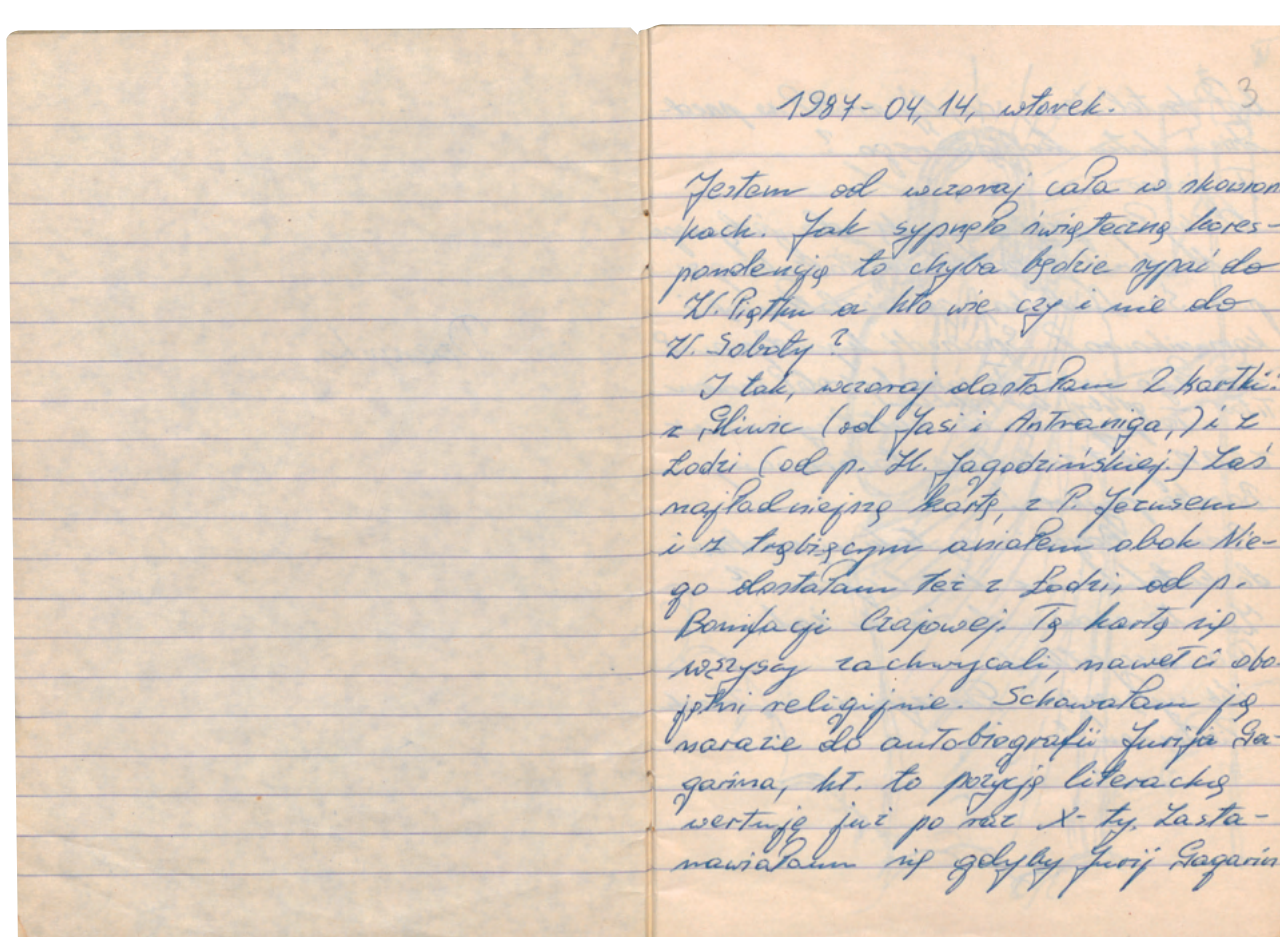 3
1987-04, 14, wtorek.
Jestem od wczoraj cała w skowron
kach. Jak sypnęło świąteczną kores-
pondencją to chyba będzie sypać do
W. Piątku a kto wie czy i nie do
W. Soboty?
I tak, wczoraj dostałam 2 kartki:
z Gliwic (od Jasi i Antraniga,) i z
Łodzi (od p. H. Jagodzińskiej.) Zaś
najładniejszą kartę, z P. Jezusem
i z trąbiącym aniołem obok Nie-
go dostałam też z Łodzi, od p.
Bonifacji Czajowej. Tą kartą się
wszyscy zachwycali, nawet ci obo-
jętni religijnie. Schowałam ją
narazie do autobiografii Jurija Ga-
garina, kt. to pozycję literacką
wertuję już po raz X-ty. Zasta-
nawiałam się gdyby Jurij Gagarin